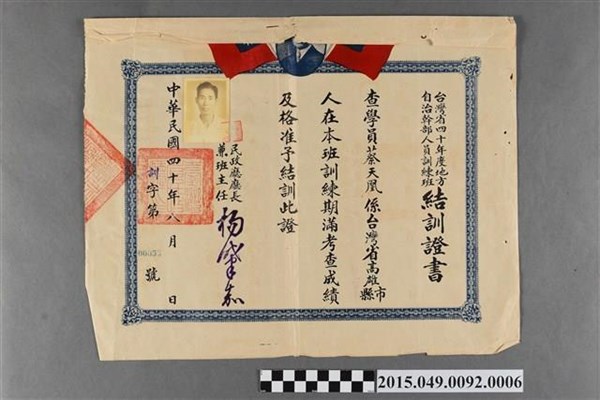 台灣省四十年度地方
自治幹部人員訓練班
結訓證書
查學員蔡天鳳係台灣省高雄市
縣
人在本班訓練期滿考查成績
及格准予結訓此證
民政廳廳長
兼班主任
楊肇嘉
中華民國四十年八月 日
訓字第 號
2015.049.0092.0006